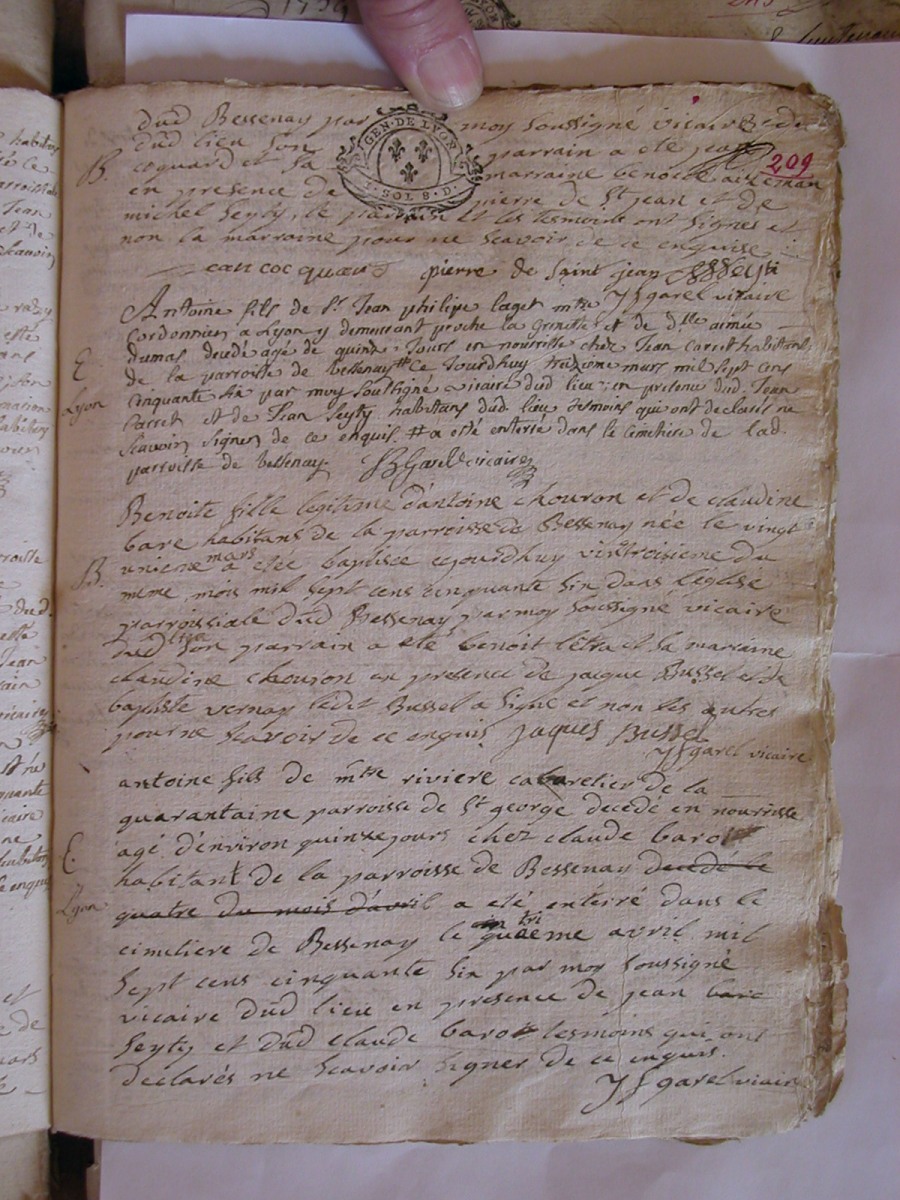 dud Bessenay par moy soussigné vicaire
dud lieu son parrain a ete jean
B. coquard et sa marraine benoite
209
GEN·DE LYON
I·SOL 8·D·
en presence de pierre de St jean et de
michel Seyty, le parrain et les tesmoins ont signes et
non la marraine pour ne scavoir de ce enquise
pierre de Saint jean
JJ garel vicaire
Antoine fils de Sr. Jean philipe laget mtre
Cordonnier a Lyon y demeurant proche la et de dlle aimée
dumas decedé agé de quinze Jours en nourrisse chez Jean Carret habitant
E de la parroisse de bessenay # Ce Jourdhuy treizieme mars mil sept cens
Lyon cinquante six par moy soussigné vicaire dud lieu en presence dud. Jean
Carret et de Jean Seyty habitans dud. lieu tesmoins qui ont declarés ne
scavoir signer de ce enquis. # a eté enterré dans le cimetiere de lad.
parroisse de bessenay. Garel vicaire
Benoite fille legitime d'antoine chouron et de claudine
bare habitans de la parroisse de Bessenay née le vingt
B. unieme mars a etée baptisée cejourdhuy vintroisieme du
meme mois mil sept cens cinquante six dans l'eglise
parroissiale dud Bessenay par moy soussigné vicaire
dud lieu son parrain a eté benoit letra et sa marraine
claudine chouron en presence de jacque Bussel et de
baptiste vernay ledt Bussel a signé et non les autres
pour ne scavoir de ce enquis Jaques Bussel
JJ garel vicaire
antoine fils de mtre riviere cabaretier de la
quarantaine parroisse de St george decedé en nourrisse
agé d'environ quinze jours chez claude barot
E. habitant de la parroisse de Bessenay decedé le
Lyon quatre du mois d'avril a eté enterré dans le
cimetiere de Bessenay le avril mil
sept cens cinquante six par moy soussigné
vicaire dud lieu en presence de jean bare
Seyty et dud claude barot tesmoins qui ont
declarés ne scavoir signer de ce enquis.
JJ garel vicaire